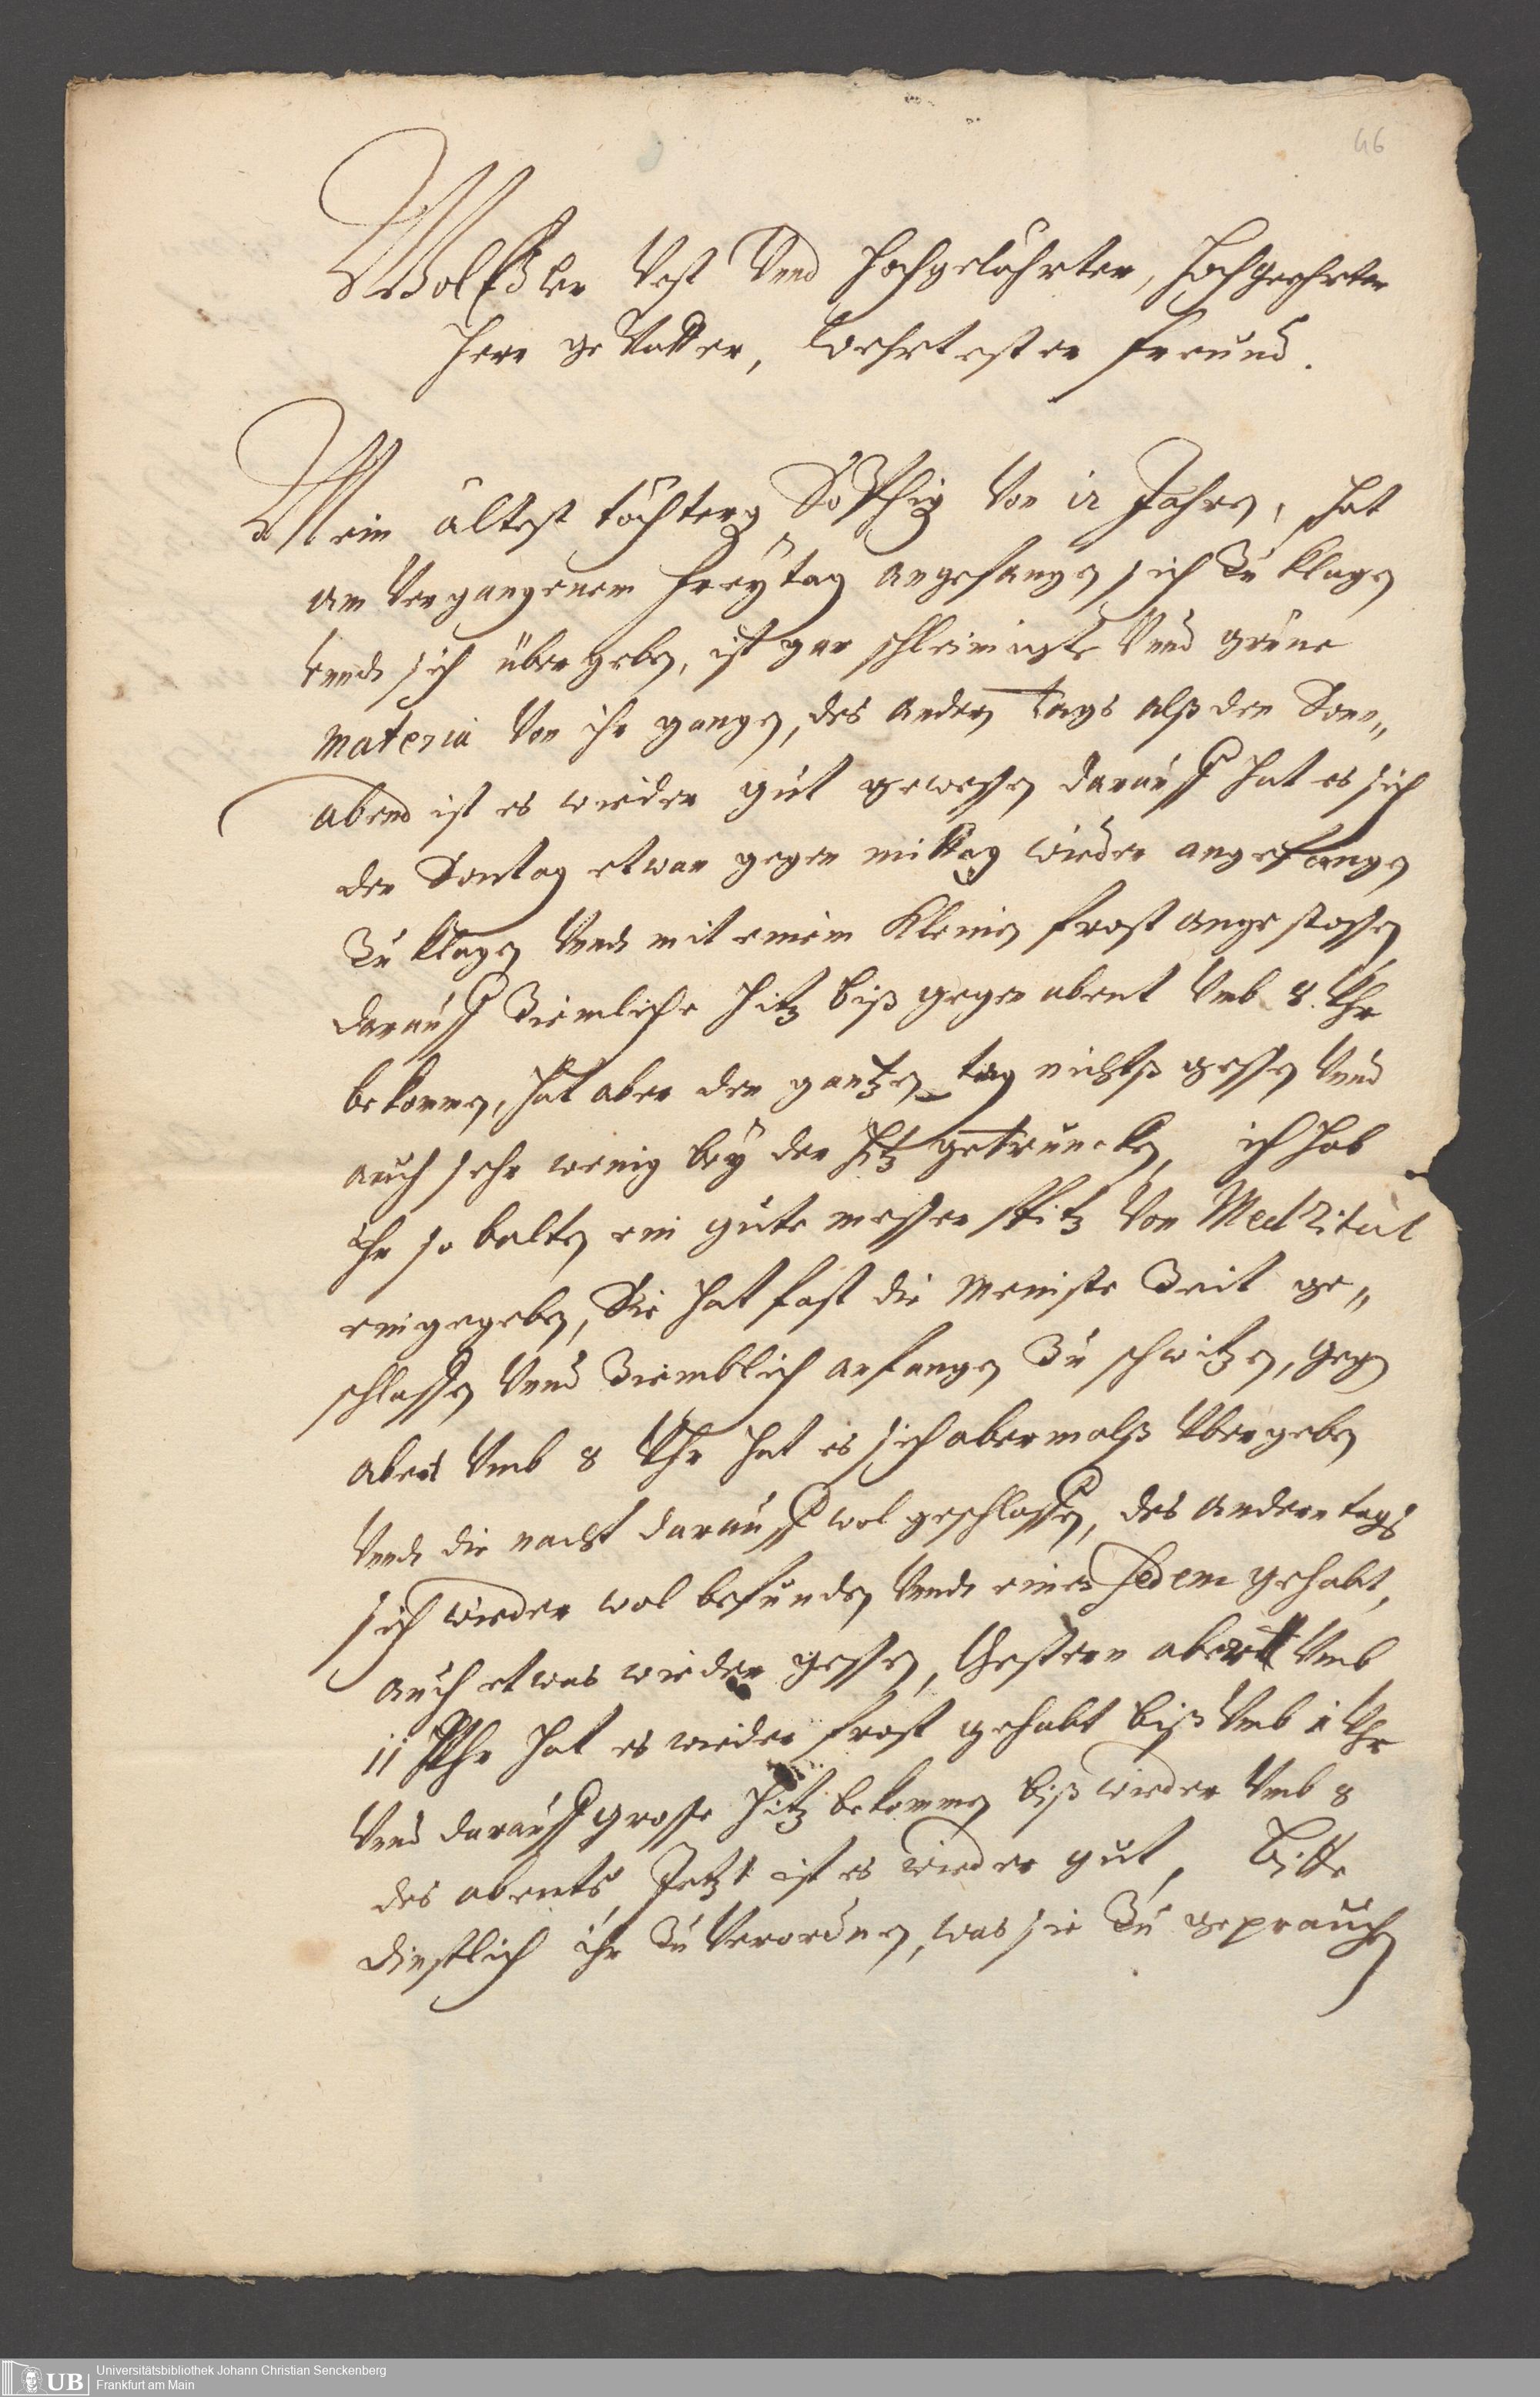 46
WolEdler Vest Vnd Hochgelährter, Hochgeehrter
Herr geVatter, Wehrtester Freund.
Mein ältest töchterg Sophig Von 12 Jahren, hat
am Vergangenem Freÿtag angefangen sich Zu klagen
Vnndt sich übergeben, ist gar schleimigte Vnnd grüne
materia Von ihr gangen, des andern tags alß den Sonn„
abend ist es wieder gut gewessen darauff hat es sich
den Sontag etwan gegen mittag wieder angefangen
Zu klagen Vndt mit einem kleinen frost angestossen
darauff Ziemliche hitz biß gegen abent Vmb 8. Uhr
bekommen, hat aber den gantzen tag nichtß gessen Vnnd
auch sehr wenig beÿ der hitz getruncken, ich hab
ihr so balten ein gute messer spitz Von
eingegeben, Sie hat fast die meinste Zeit ge„
schlaffen Vnnd Ziemblich anfangen Zu schwitzen, gegen
abent Vmb 8 Uhr hat es sich abermalß Vbergeben
Vndt die nacht darauff wol geschlaffen, des andern tags
sich wieder wol befunden Vndt einen sedem gehabt,
auch etwas wieder gessen, Gestern abent Vmb
11 Uhr hat es wieder frost gehabt biß Vmb 1 Uhr
Vnnd darauff grosse hitz bekommen biß wieder Vmb 8
des abents, Jetzt ist es wieder gut, Bitte
dinstlich ihr Zu Verordnen, was sie Zu geprauchen
UB
Universitätsbibliothek Johann Christian Senckenberg
Frankfurt am Main